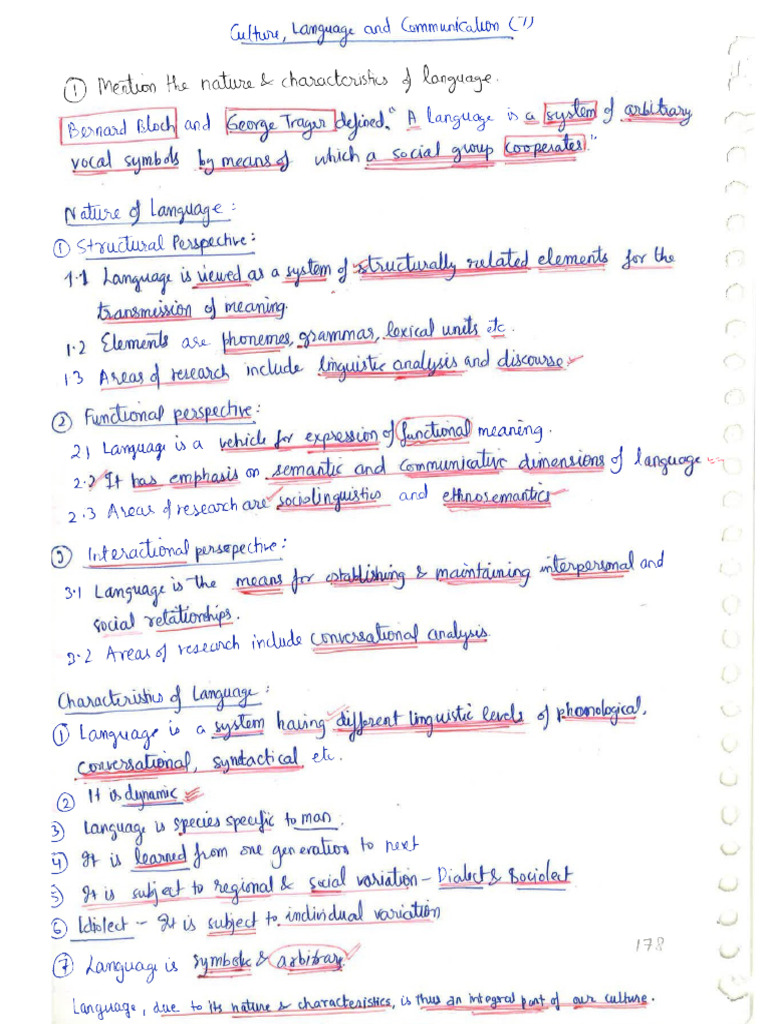 Culture, Language and Communication (7)
① Mention the nature & characteristics of language.
Bernard Bloch and George Trager defined, "A language is a system of arbitrary
vocal symbols by means of which a social group cooperates."
Nature of Language:
① Structural Perspective:
1.1 Language is viewed as a system of structurally related elements for the
transmission of meaning.
1.2 Elements are phonemes, grammar, lexical units etc.
1.3 Areas of research include linguistic analysis and discourse
② Functional perspective:
2.1 Language is a vehicle for expression of functional meaning.
2.2 It has emphasis on semantic and communicative dimensions of language
2.3 Areas of research are sociolinguistics and ethnosemantics
③ Interactional perspective:
3.1 Language is the means for establishing & maintaining interpersonal and
social relationships.
3.2 Areas of research include conversational analysis.
Characteristics of Language:
① Language is a system having different linguistic levels of phonological,
conversational, syntactical etc.
② It is dynamic
③ Language is species specific to man.
④ It is learned from one generation to next
⑤ It is subject to regional & social variation - Dialect & Sociolect
⑥ Idiolect - It is subject to individual variation
⑦ Language is symbolic & arbitrary
178
Language, due to its nature & characteristics, is thus an integral part of our culture.